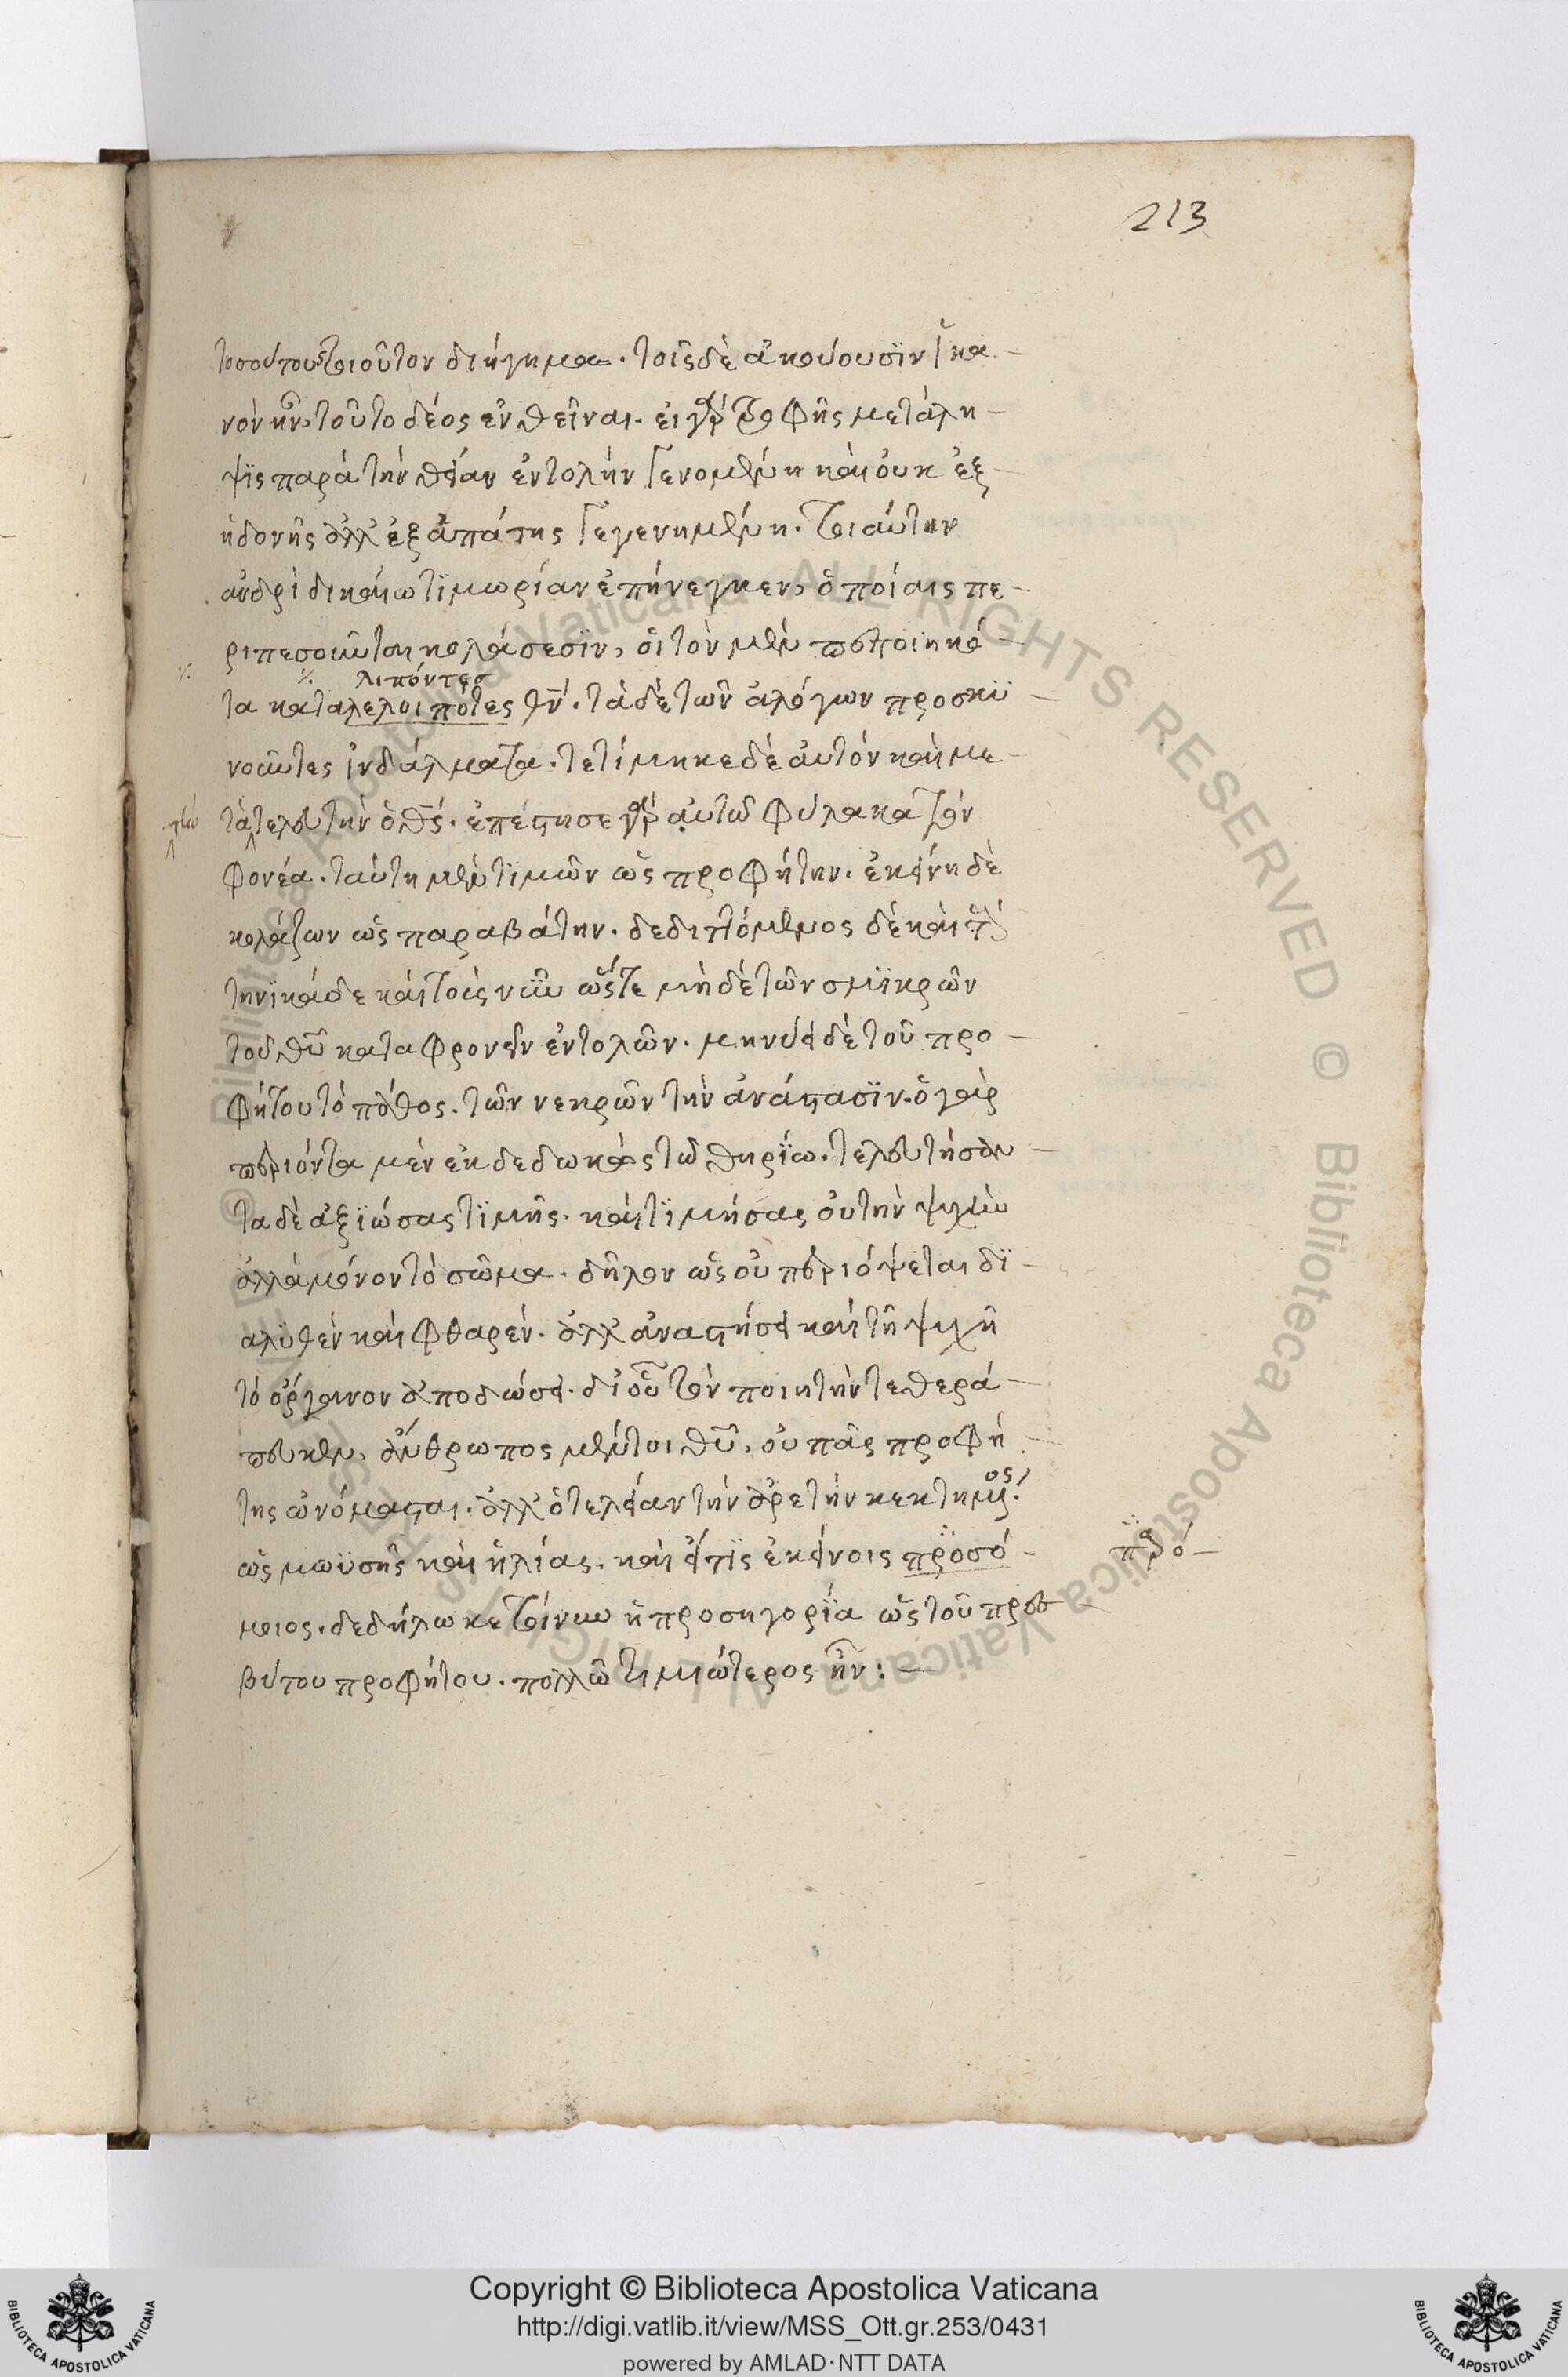 213
τοσούτου τοιοῦτον διήγημα. τοῖς δὲ ἀκούουσϊν ἱκα-
νὸν ἦν, τοῦτο δέος ἐνθεῖναι. εἰ γὰρ τροφῆς μετάλη-
ψϊς παρὰ τὴν θείαν ἐντολὴν γενομένη καὶ οὐκ ἐξ
ἡδονῆς ἀλλ' ἐξ ἀπάτης γεγενημένη. τοιαύτην
ἀνδρὶ δικαίω τϊμωρίαν ἐπήνεγκεν, ὁποίαις πε-
ριπεσοῦνται κολάσεσϊν, οἱ τὸν μὲν πεποιηκό-
λιπόντες
τα καταλελοιπότες θν. τὰ δὲ τῶν ἀλόγων προσκϋ-
νοῦντες ἰνδάλματα. τετίμηκε δὲ αὐτὸν καὶ με-
τὴν
τὰ τελευτὴν ὁ θς. ἐπέστησε γὰρ αὐτῶ φύλακα τὸν
φονέα. ταύτη μὲν τϊμῶν ὡς προφήτην. ἐκείνη δὲ
κολάζων ὡς παραβάτην. δεδιττόμενος δὲ καὶ τοὺς
τηνϊκάδε καὶ τοὺς νῦν ὥστε μὴ δὲ τῶν σμϊκρῶν
τοῦ θυ καταφρονεῖν ἐντολῶν. μηνύει δὲ τοῦ προ-
φήτου τὸ πάθος. τῶν νεκρῶν τὴν ἀνάστασϊν. ὁ γὰρ
περιόντα μὲν ἐκδεδωκὼς τῶ θηρϊω. τελευτήσαν-
τα δὲ ἀξϊώσας τϊμῆς. καὶ τϊμήσας οὐ τὴν ψυχὴν
ἀλλὰ μόνον τὸ σῶμα. δῆλον ὡς οὐ περιόψεται δϊ-
αλϋθὲν καὶ φθαρέν. ἀλλ' ἀναστήσει καὶ τῆ ψυχῆ
τὸ ὄργανον ἀποδώσει. δι' οὗ τὸν ποιητὴν τεθερά-
πευκεν. ἄνθρωπος μέντοι θυ, οὐ πᾶς προφή-
της ὠνόμασται. ἀλλ' ὁ τελείαν τὴν ἀρετὴν κεκτημένος.
ὡς μωϋσῆς καὶ ἡλίας. καὶ εἴ τϊς ἐκείνοις προσό-
μοιος. δεδήλωκε τοίνυν ἡ προσηγορϊα ὡς τοῦ πρεσ-
βύτου προφήτου. πολλῶ τιμιώτερος ἦν: -
Copyright © Biblioteca Apostolica Vaticana
http://digi.vatlib.it/view/MSS_Ott.gr.253/0431
powered by AMLAD·NTT DATA